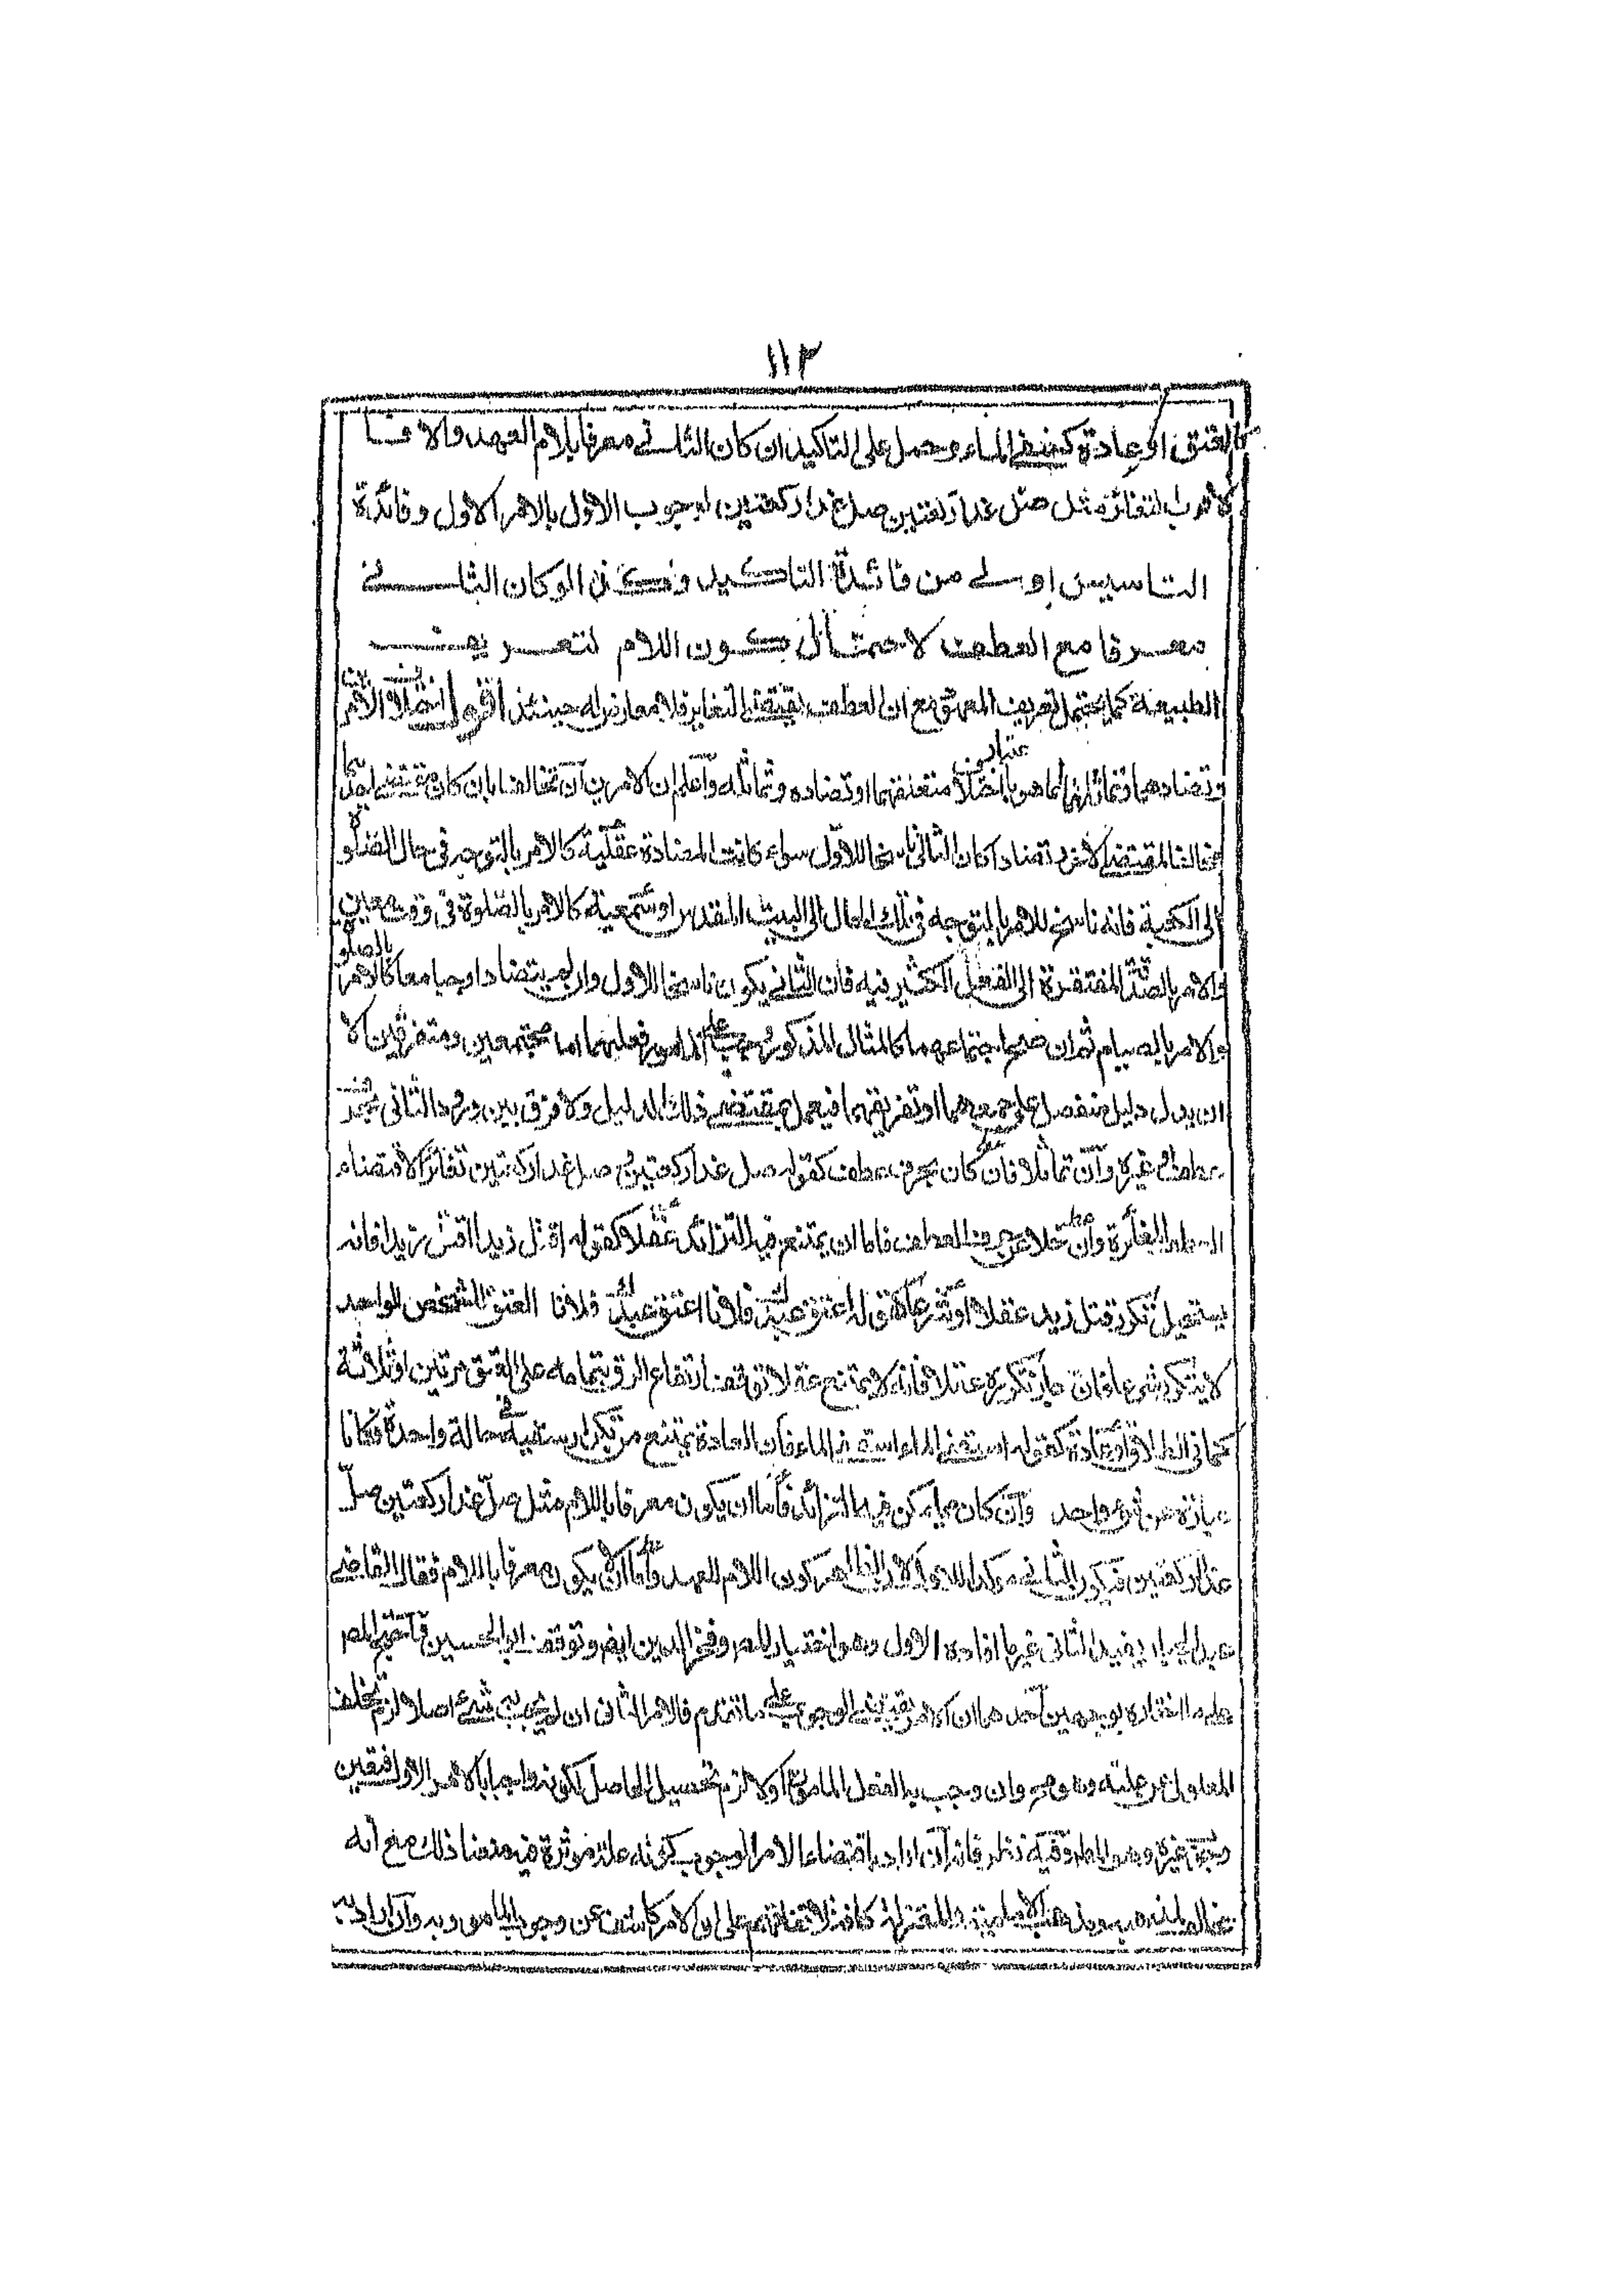 ١١٣
كالعتق او عادة كسقى الماء وحمل على التاكيد ان كان الثانى معرفا بلام العهد والا فا
لاقرب التغاير مثل صل غدا ركعتين صل غدا ركعتين لوجوب الاول بالامر الاول وفائدة
التاسيس اولى من فائدة التاكيد وكذا لو كان الثانى
معرفا مع العطف لاحتمال كون اللام لتعريف
الطبيعة كما يحتمل تعريف المعهود مع ان العطف يقتضى التغاير فلا معارض له حينئذ اقول اختلاف الامرين
وتضادهما وتماثلهما انما هو باعتبار اختلاف متعلقهما او تضاده وتماثله واعلم ان الامرين ان تخالفا بان كان مقتضى احدهما
مخالفا لمقتضى الاخر وتضادا كان الثانى ناسخا للاول سواء كانت المضادة عقلية كالامر بالتوجه فى حال الصلوة
الى الكعبة فانه ناسخ للامر بالتوجه فى تلك الحال الى البيت المقدس او سمعية كالامر بالصلوة فى وقت معين
والامر بالصدقة المفتقرة الى الفعل الكثير فيه فان الثانى يكون ناسخا للاول وان لم يتضادا وجبا معا كالامر بالصلوة
والامر بالصيام ثم ان صح اجتماعهما كالمثال المذكور وجب على المامور فعلهما اما مجتمعين او متفرقين الا
ان يدل دليل منفصل على جمعهما او تفريقهما فيعمل بمقتضى ذلك الدليل ولا فرق بين ورود الثانى بحرف
عطف او غيره وان تماثلا فان كان بحرف عطف كقوله صل غدا ركعتين وصل غدا ركعتين تغايرا لاقتضاء
العطف المغايرة وان خلا عن حرف العطف فاما ان يمتنع فيه التزايد عقلا كقوله اقتل زيدا اقتل زيدا فانه
يستحيل تكرر قتل زيد عقلا او شرعا كقوله اعتق عبدك فلانا اعتق عبدك فلانا العتق للشخص الواحد
لا يتكرر شرعا وان جاز تكرره عقلا فانه لا يمتنع عقلا توقف ارتفاع الرق بتمامه على العتق مرتين او ثلاثة
كما فى الطلاق او عادة كقوله اسقنى الماء اسقنى الماء فان العادة تمنع من تكرار سقيه فى حالة واحدة فكانا
عبارة عن شىء واحد وان كان مما يمكن فيه التزايد فاما ان يكون معرفا باللام مثل صل غدا ركعتين صل
غدا الركعتين فيكون الثانى موكدا للاول لان الظاهر كون اللام للعهد واما الا يكون معرفا باللام فقال القاضى
عبد الجبار يفيد الثانى غير ما افاده الاول وهو اختيار المص وفخر الدين ايضا وتوقف ابو الحسين واحتج المص
على ما اختاره بوجهين احدهما ان الامر يقتضى الوجوب على ما تقدم فالامر الثانى ان لم يجب به شىء اصلا لزم تخلف
المعلول عن علته وهو مح وان وجب به الفعل المامور به اولا لزم تحصيل الحاصل لكونه واجبا بالامر الاول فتعين
وجوب غيره وهو المط وفيه نظر فانه ان اراد باقتضاء الامر الوجوب كونه علة مؤثرة فيه منعنا ذلك مع انه
مخالف لمذهبه ومذهب الامامية والمعتزلة كافة لاتفاقهم على ان الامر كاشف عن وجوب المامور به وان اراد به